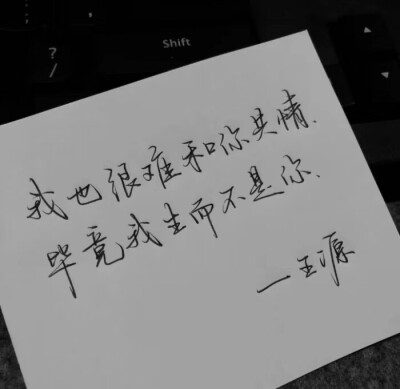 Shift
?
/
我也很难和你共情、
毕竟我生而不是你、
—王源